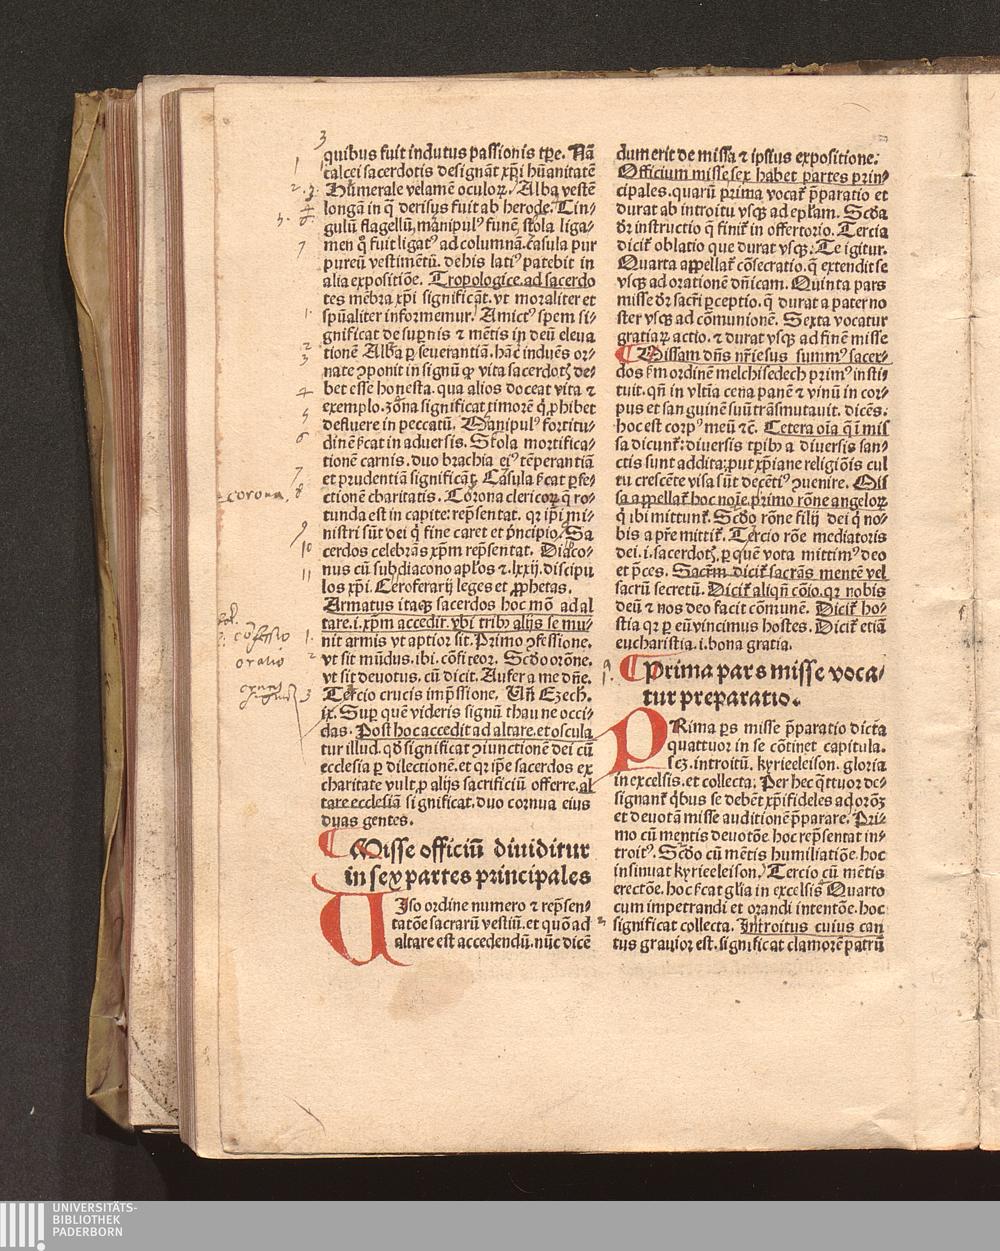 3
quibus fuit indutus passionis tp̄e. Nā
calcei sacerdotis designāt xp̄i hūanitatē
Hūmerale velamē oculoꝝ. Alba vestē
longā in q̄ derisus fuit ab herode. Cin⸗
gulū flagellū, manipulꝰ funē, stola liga⸗
men qͦ fuit ligatꝰ ad columnā. casula pur
pureū vestimētū. de his latiꝰ patebit in
alia expositiōe. Tropologice. ad sacerdo
tes mēbra xp̄i significāt. vt moraliter et
spūaliter informemur. Amictꝰ spem si⸗
gnificat de supnis ⁊ mētis in deū eleua
tionē Alba ꝑseuerantiā. hāc induēs or⸗
nate ꝯponit in signū ꝙ vita sacerdotꝫ de⸗
bet esse honesta. qua alios doceat vita ⁊
exemplo. zōna significat timorē q̇ ꝓhibet
defluere in peccatū. Manipulꝰ fortitu⸗
dinē ẜcat in aduersis. Stola mortifica⸗
tionē carnis. duo brachia eiꝰ tēperantiā
et prudentiā significāt. Casula ẜcat ꝑfe⸗
ctionē charitatis. Corona clericoꝝ q̄ ro⸗
tunda est in capite: rep̄sentat. qꝛ ip̄i mi⸗
nistri sūt dei q̄ fine caret et p̄ncipio. Sa
cerdos celebrās xp̄m rep̄sentat. Diaco⸗
nus cū subdiacono apl̄os ⁊ .lxxij. discipu
los xp̄i. Ceroferarij leges et ꝓphetas.
Armatus itaqꝫ sacerdos hoc mō ad al
tare .i. xp̄m accedit. vbi tribꝰ alijs se mu⸗
nit armis vt aptior sit. Primo ꝯfessione.
vt sit mūdus. ibi. cōfiteor. Scd̄o orōne.
vt sit deuotus. cū dicit. Aufer a me dn̄e.
Tercio crucis imp̄ssione. Vn̄ Ezech.
ix. Sup quē videris signū thau ne occi⸗
das. Post hoc accedit ad altare. et oscula
tur illud. qd̄ significat ꝯiunctionē dei cū
ecclesia ꝑ dilectionē. et qꝛ ip̄e sacerdos ex
charitate vult, ꝓ alijs sacrificiū offerre. al
tare ecclesiā significat. duo cornua eius
duas gentes.
Misse officiū diuiditur
in sex partes principales
Uiso ordine numero ⁊ rep̄sen⸗
tatōe sacrarū vestiū. et quō ad
altare est accedendū. nūc dicē
dum erit de missa ⁊ ipsius expositione.
Officium misse sex habet partes prin⸗
cipales. quarū prima vocať p̄paratio et
durat ab introitu vsqꝫ ad ep̄lam. Scd̄a
dꝛ instructio q̄ finiť in offertorio. Tercia
diciť oblatio que durat vsqꝫ: Te igitur.
Quarta appellať cōsecratio. q̄ extendit se
vsqꝫ ad orationē dn̄icam. Quinta pars
misse dꝛ sacr̄i ꝑceptio. q̄ durat a pater no
ster vsqꝫ ad cōmunionē. Sexta vocatur
gratiaꝝ actio. ⁊ durat vsqꝫ ad finē misse
Missam dn̄s nr̄ iesus summꝰ sacer⸗
dos ẜm ordinē melchisedech primꝰ insti
tuit. qn̄ in vltīa cena panē ⁊ vinū in cor⸗
pus et sanguinē suū trāsmutauit. dicēs.
hoc est corpꝰ meū ⁊c̄. Cetera oīa q̄ i mis
sa dicunť: diuersis tꝑibꝰ a diuersis san⸗
ctis sunt addita: put xp̄iane religiōis cul
tu crescēte visa sūt decētiꝰ ꝯuenire. Mis
sa appellať hoc noīe. primo rōne angeloꝝ
q̇ ibi mittunť. Scd̄o rōne filij dei q̇ no⸗
bis a pr̄e mittiť. Tercio rōe mediatoris
dei .i. sacerdotꝫ. ꝑ quē vota mittimꝰ deo
et p̄ces. Sacr̄m diciť sacrās mentē vel
sacrū secretū. Diciť aliqn̄ cōio. qꝛ nobis
deū ⁊ nos deo facit cōmunē. Diciť ho⸗
stia qꝛ ꝑ eū vincimus hostes. Diciť etiā
eucharistia .i. bona gratia.
Prima pars misse voca⸗
tur preparatio.
PRima ꝑs misse p̄paratio dicta
quattuor in se cōtinet capitula.
scꝫ. introitū. kyrieeleison. gloria
in excelsis. et collecta. Per hec q̄ttuor de⸗
signanť q̇bus se debēt xp̄ifideles ad orōꝫ
et deuotā misse auditionē p̄parare. Pri⸗
mo cū mentis deuotōe hoc rep̄sentat in⸗
troitꝰ. Scd̄o cū mētis humiliatiōe. hoc
insinuat kyrieeleison. Tercio cū mētis
erectōe. hoc ẜcat gl̄ia in excelsis Quarto
cum impetrandi et orandi intentōe. hoc
significat collecta. Introitus cuius can
tus grauior est. significat clamorē patrū
corona.
oratio
UNIVERSITÄTS-
BIBLIOTHEK
PADERBORN